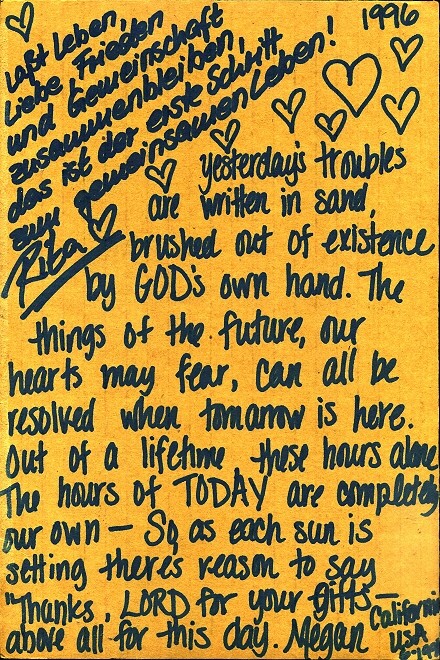 1996
Laßt Leben,
Liebe Frieden
und Gemeinschaft
zusammenbleiben,
das ist der erste Schritt
zum gemeinsamen Leben!
Rita
yesterday's troubles
are written in sand,
brushed out of existence
by GOD's own hand. The
things of the future, our
hearts may fear, can all be
resolved when tomorrow is here.
Out of a lifetime these hours alone
The hours of TODAY are completely
our own — So, as each sun is
setting there's reason to say
"Thanks, LORD for your gifts—
above all for this day. Megan
California
USA